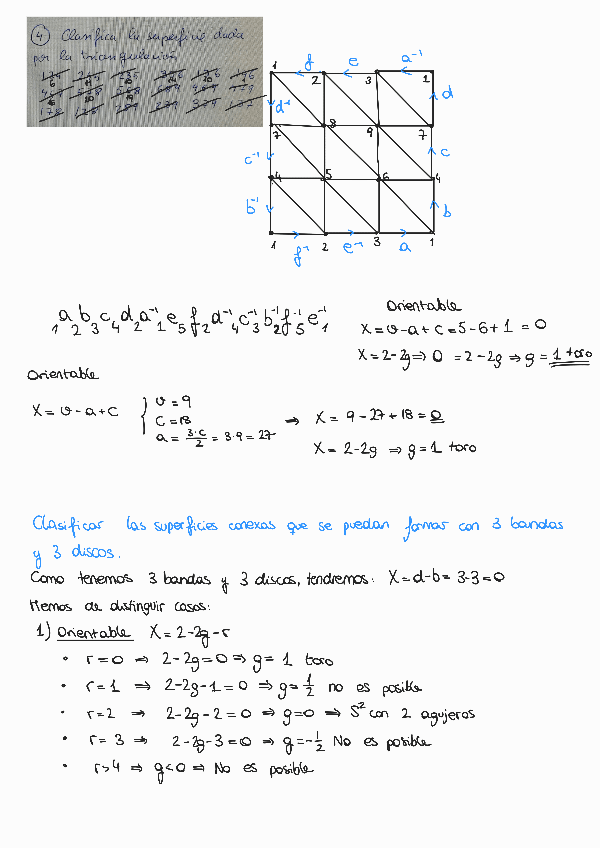 ④ Clasifica la superficie dada
por la triangulación
1 2 3 1
f e a⁻¹
d⁻¹ d
7 8 9 7
c⁻¹ c
4 5 6 4
b⁻¹ b
1 2 3 1
f⁻¹ e⁻¹ a
₁a₂b₃c₄d₂a⁻¹₁e₅f₂d⁻¹₄c⁻¹₃b⁻¹₂f⁻¹₅e⁻¹₁
Orientable
χ = v-a+c = 5-6+1 = 0
χ = 2-2g ⇒ 0 = 2-2g ⇒ g = 1 toro
Orientable
χ = v-a+c { v = 9
c = 18
a = 3·c/2 = 3·9 = 27
→ χ = 9-27+18 = 0
χ = 2-2g ⇒ g = 1 toro
Clasificar las superficies conexas que se puedan formar con 3 bandas
y 3 discos.
Como tenemos 3 bandas y 3 discos, tendremos: χ = d-b = 3-3 = 0
Hemos de distinguir casos:
1) Orientable χ = 2-2g-r
• r=0 ⇒ 2-2g=0 ⇒ g= 1 toro
• r=1 ⇒ 2-2g-1=0 ⇒ g= 1/2 no es posible
• r=2 ⇒ 2-2g-2=0 ⇒ g=0 ⇒ S² con 2 agujeros
• r=3 ⇒ 2-2g-3=0 ⇒ g=-1/2 No es posible
• r>4 ⇒ g<0 ⇒ No es posible